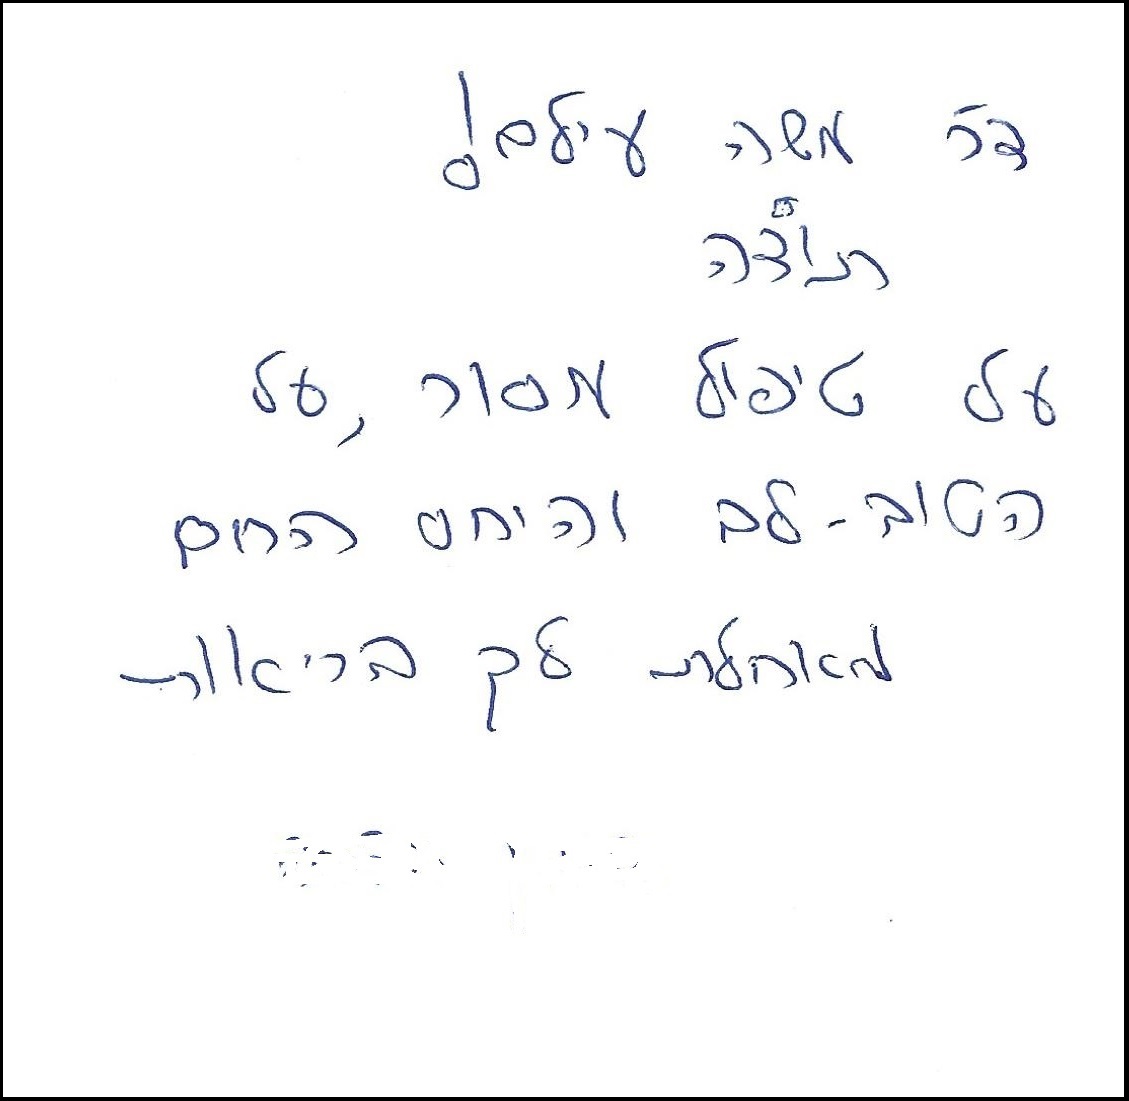 דר' משה עילם!
תודה
על טיפול מסור, על
הטוב-לב והיחס החם
מאחלת לך בריאות